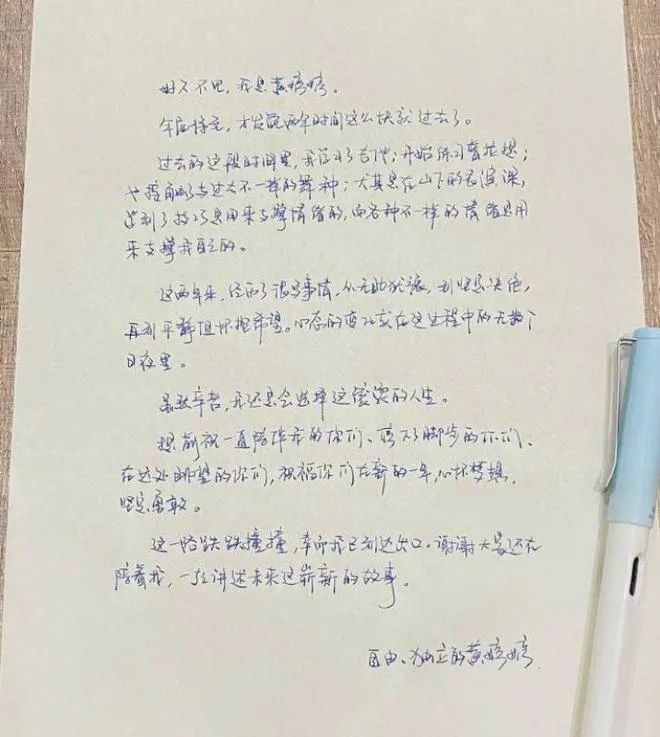 好久不见，我是黄婷婷。
年届将完，才发觉两年时间这么快就过去了。
过去的这段时间里，我学习了吉他；开始练习普拉提；
也接触了与过去不一样的舞种；尤其是在山下的表演课，
学到了技巧是用来支撑情绪的，而各种不一样的情绪是用
来支撑我自己的。
这两年来，经历了很多事情，从无助犹豫，到坚定决绝，
再到平静但怀抱希望。心态的变化或在这过程中的无数个
日夜里。
虽然辛苦，我还是会选择这份真实的人生。
提前祝一直陪伴我的你们、停下了脚步的你们、
在远处眺望的你们，祝福你们在新的一年，心怀梦想，
坚定勇敢。
这一路跌跌撞撞，幸而我已到达出口。谢谢大家还在
陪着我，一起讲述未来这崭新的故事。
自由、独立的黄婷婷